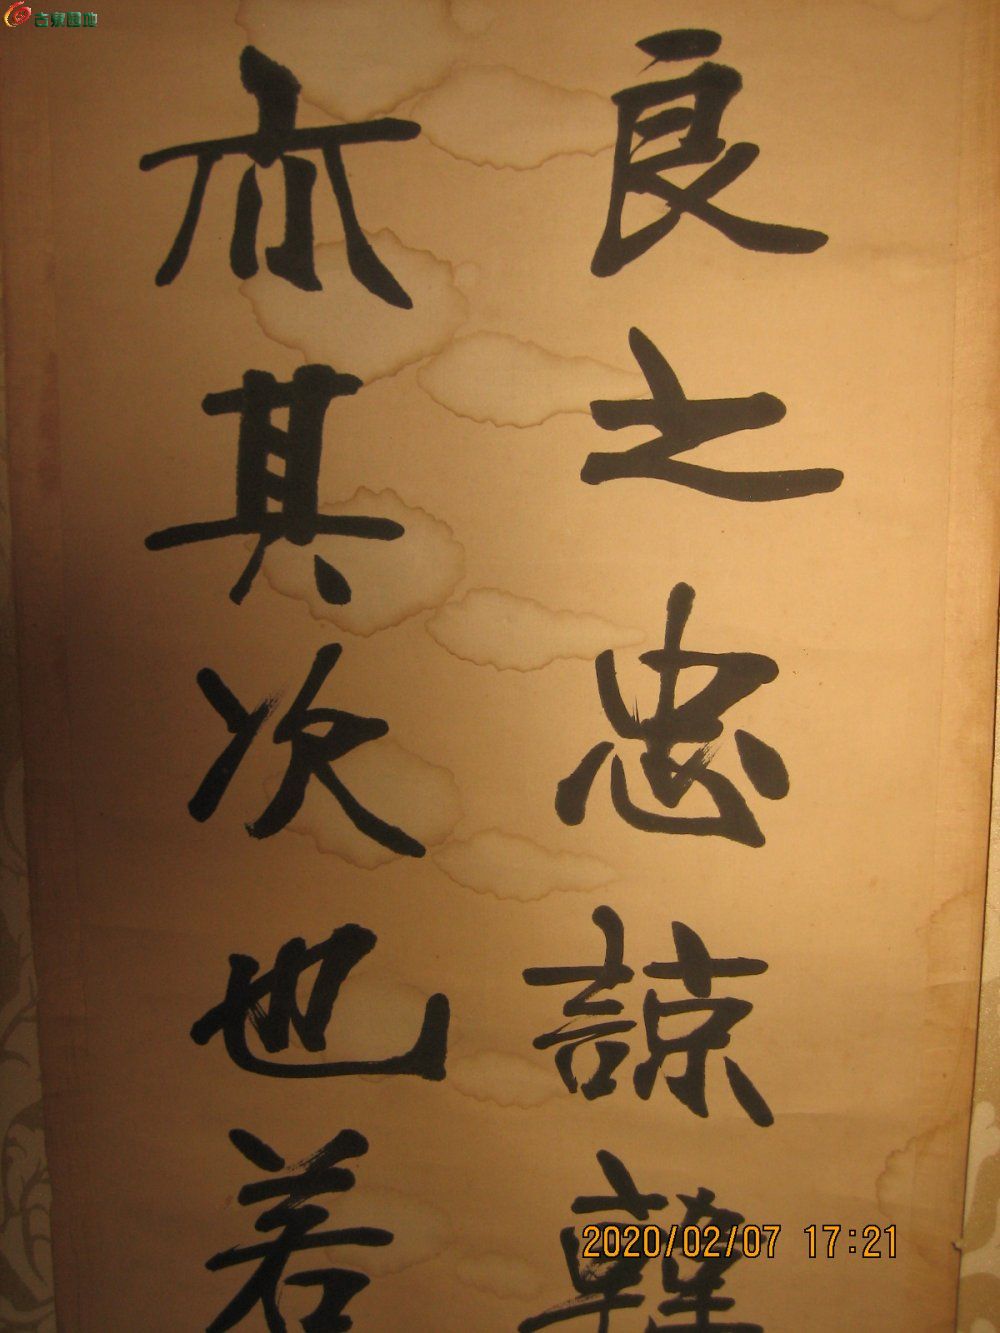 古泉園地
良之忠諒韓
亦其次也若
2020/02/07 17:21